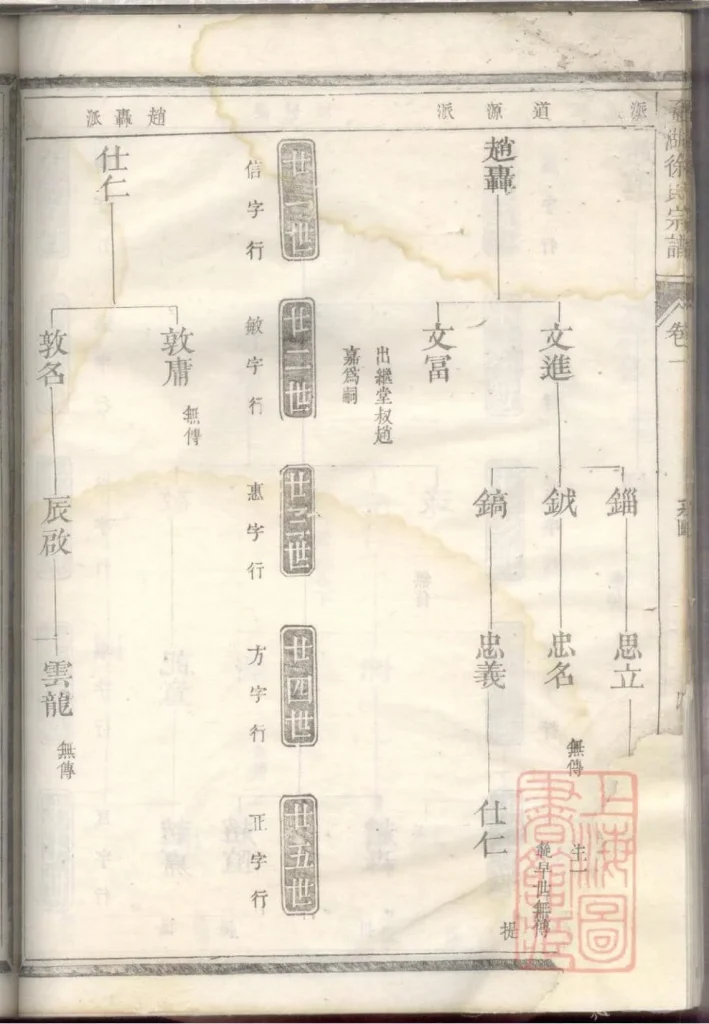 徐氏宗譜
卷一
派
道源派
趙轟
文進
文冨
出繼堂叔趙
嘉爲嗣
錙
鉞
鎬
思立
忠名
無傳
忠義
生一
早世無傳
仕仁
提
廿一世
信字行
廿二世
敏字行
廿三世
惠字行
廿四世
方字行
廿五世
正字行
趙轟派
仕仁
敦庸
無傳
敦名
辰啟
雲龍
無傳
上海圖
書館藏